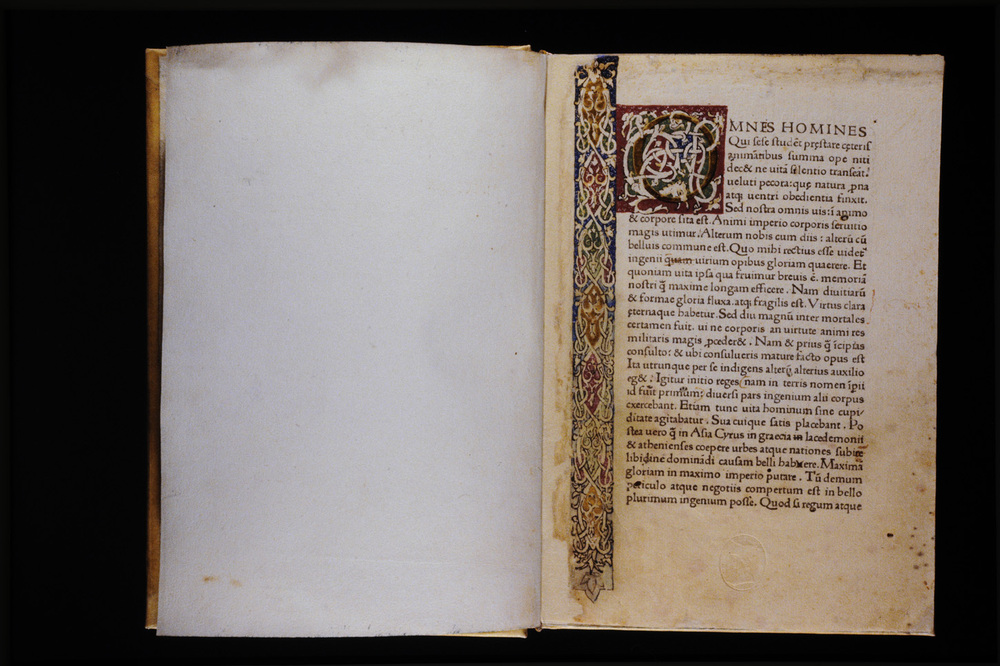 OMNES HOMINES
Qui sese studẽt pręstare cęteris
animãtibus summa ope niti
dec& ne uitã silentio transeãt.
ueluti pecora: quę natura ꝓna
atqꝫ uentri obedientia finxit.
Sed nostra omnis uis: ĩ animo
& corpore sita est. Animi imperio corporis seruitio
magis utimur. Alterum nobis cum diis: alterũ cũ
belluis commune est. Quo mihi rectius esse uidet᷑
ingenii quam uirium opibus gloriam quaerere. Et
quoniam uita ipsa qua fruimur breuis ẽ. memoriã
nostri q̃ maxime longam efficere. Nam diuitiarũ
& formae gloria fluxa. atqꝫ fragilis est. Virtus clara
ęternaque habetur. Sed diu magnũ inter mortales
certamen fuit. ui ne corporis an uirtute animi res
militaris magis ꝓceder&. Nam & prius q̃ ĩcipias
consulto: & ubi consulueris mature facto opus est
Ita utrunque per se indigens alterũ alterius auxilio
eg&: Igitur initio reges nam in terris nomen ĩpii
id fuit primum: diuersi pars ingenium alii corpus
exercebant. Etiam tunc uita hominum sine cupi/
ditate agitabatur. Sua cuique satis placebant. Po
stea uero q̃ in Asia Cyrus in graecia in lacedemonii
& athenienses coepere urbes atque nationes subire
libidinẽ dominãdi causam belli habuere. Maximã
gloriam in maximo imperio putare. Tũ demum
periculo atque negotiis compertum est in bello
plurimum ingenium posse. Quod si regum atque